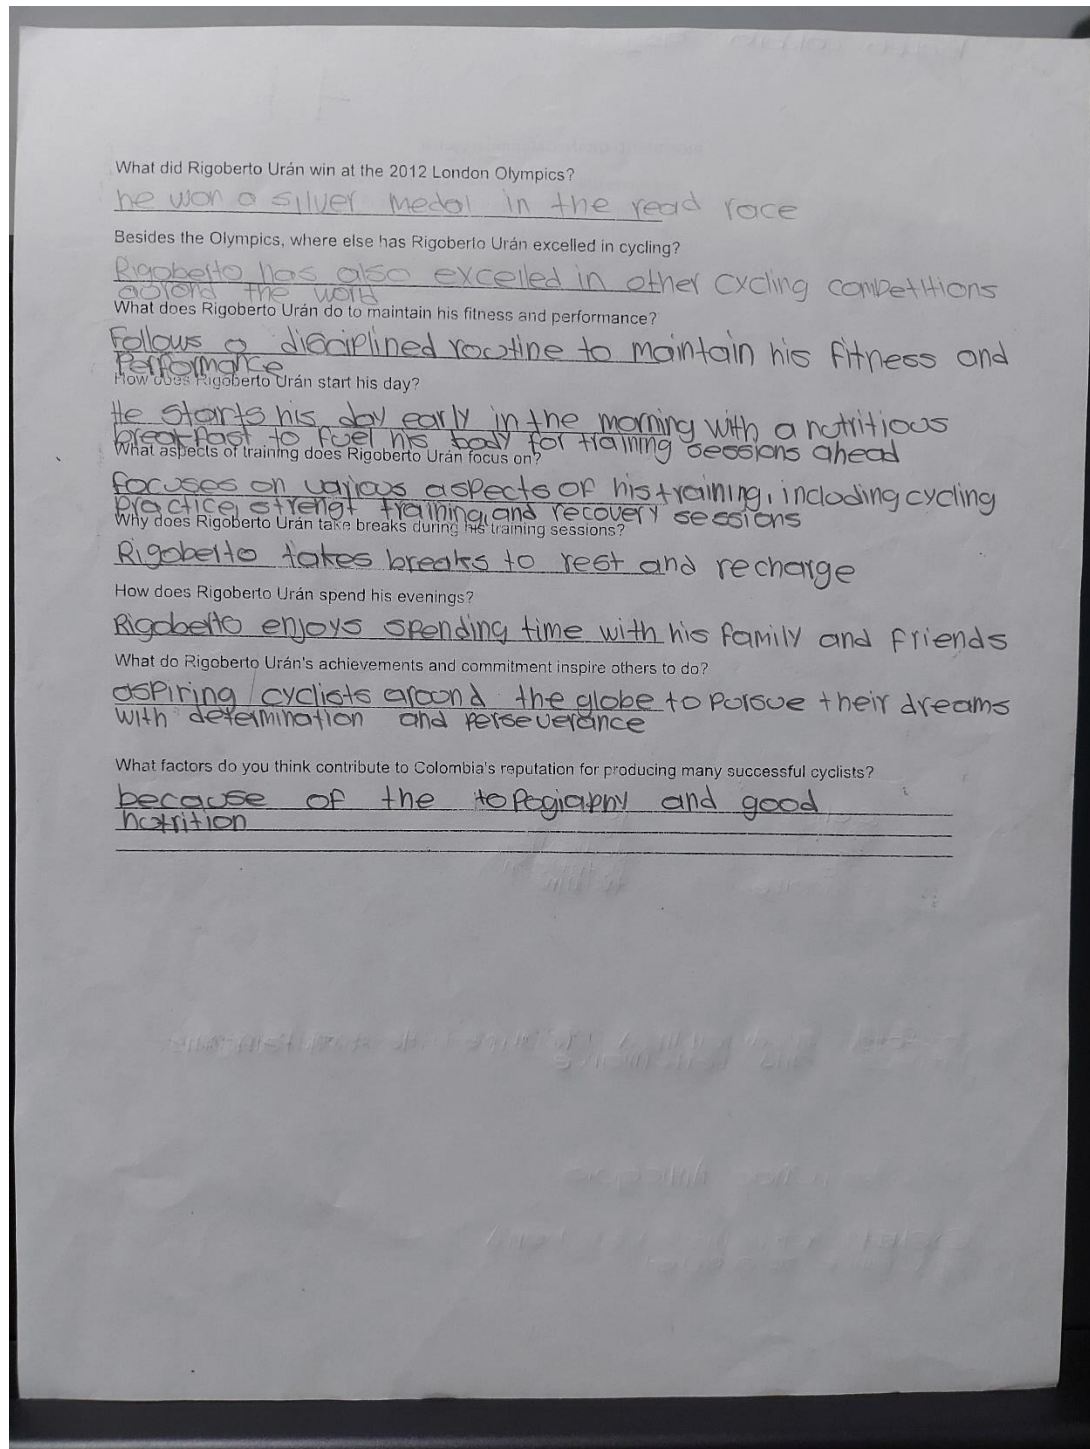 What did Rigoberto Urán win at the 2012 London Olympics?
he won a silver medal in the read race
Besides the Olympics, where else has Rigoberto Urán excelled in cycling?
Rigoberto has also excelled in other cycling competitions
the world
What does Rigoberto Urán do to maintain his fitness and performance?
Follows a disciplined routine to maintain his fitness and
Performance
How does Rigoberto Urán start his day?
He starts his day early in the morning with a nutritious
breakfast to fuel his body for training sessions ahead
What aspects of training does Rigoberto Urán focus on?
focuses on various aspects of his training, including cycling
practice, strengt training, and recovery sessions
Why does Rigoberto Urán take breaks during his training sessions?
Rigoberto takes breaks to rest and recharge
How does Rigoberto Urán spend his evenings?
Rigoberto enjoys spending time with his family and friends
What do Rigoberto Urán's achievements and commitment inspire others to do?
aspiring cyclists around the globe to pursue their dreams
with determination and perseverance
What factors do you think contribute to Colombia's reputation for producing many successful cyclists?
because of the topography and good
nutrition